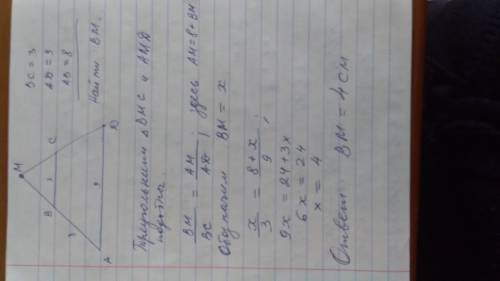 BC = 3
AD = 9
AB = 8
Найти BM.
M
B
C
A
D
9
Треугольники ΔBMC и AMD
подобны.
BM/BC = AM/AD ; здесь AM = 8 + BM
Обозначим BM = x
x/3 = 8+x/9 ,
9x = 24 + 3x
6x = 24
x = 4
Ответ BM = 4 см